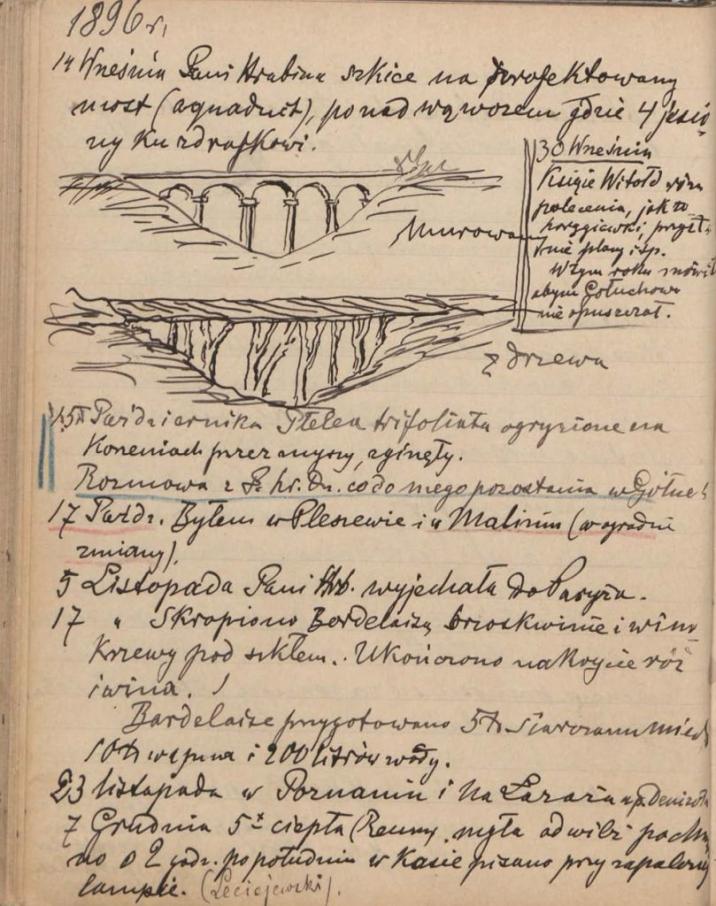 1896 r.
14 Wneśnia Pani Hrabina szkice na projektowany
most (aquaduct), ponad wąwozem gdzie 4 jesio
ny ku zdrojkowi.
Murowany
30 Wneśnia
Książe Witold
polecenia, jak to
plany itp.
W tym roku mówił
abym Gołuchowa
nie opuszczał.
z drzewa
15 Paźdz iernika Ptelea trifoliata ogryzione na
Korzeniach przez myszy, zginęły.
Rozmowa z P. hr. Dz. co do mego pozostania w Gołuch
17 Paźdz. Byłem w Pleszewie i w Malinin (w ogrodzie
zmiany).
5 Listopada Pani Hrb. wyjechała do Paryża.
17 " Skropiono Bordelaizą brzoskwinie i winn
Krzewy pod szkłem. Ukończono nakrycie róż
i wina.
Bardelaize przygotowano 5 ℔ Siarczanu miedz
10 ℔ wapna i 200 litrów wody.
23 listopada w Poznaniu i na Łazarzu u p. Denizota
7 Grudnia 5° ciepła (Reaum. mgła odwilż pochm
no o 2 godz. po południu w Kasie pisano przy zapalonej
lampie. (Leciejewski).